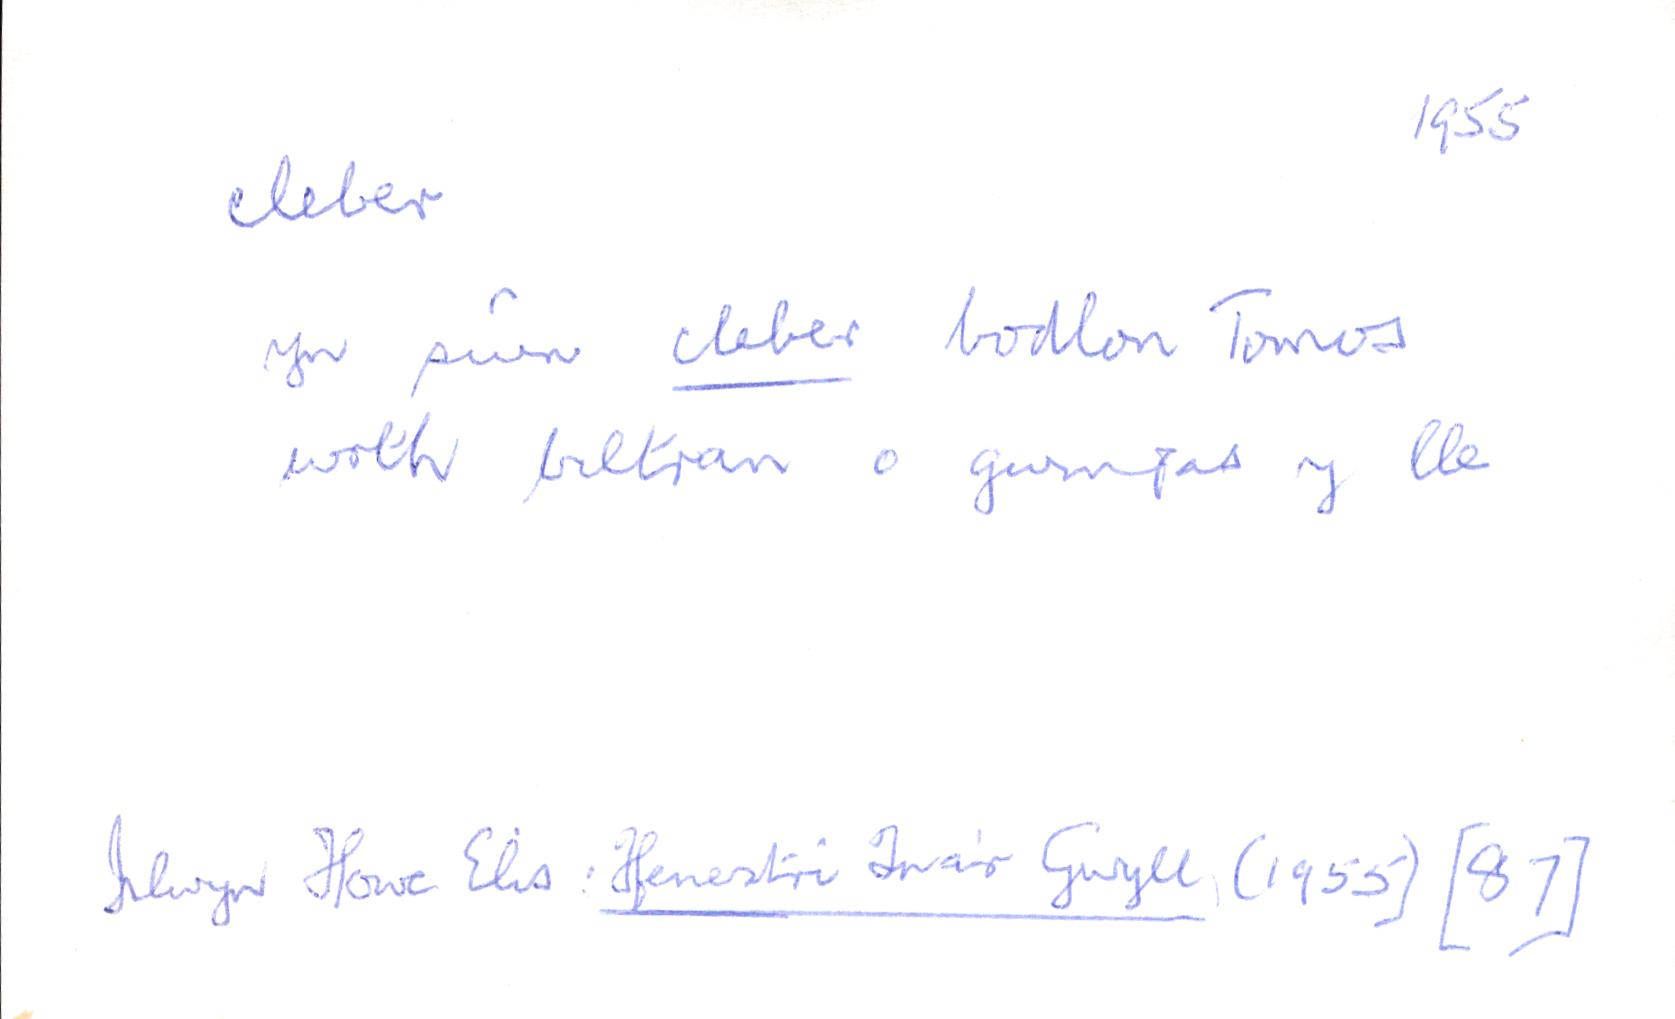 1955
cleber
yn sŵn cleber bodlon Tomos
wrth beltran o gwmpas y lle
Islwyn Ffowc Elis: Ffenestri Tua'r Gwyll (1955) [87]